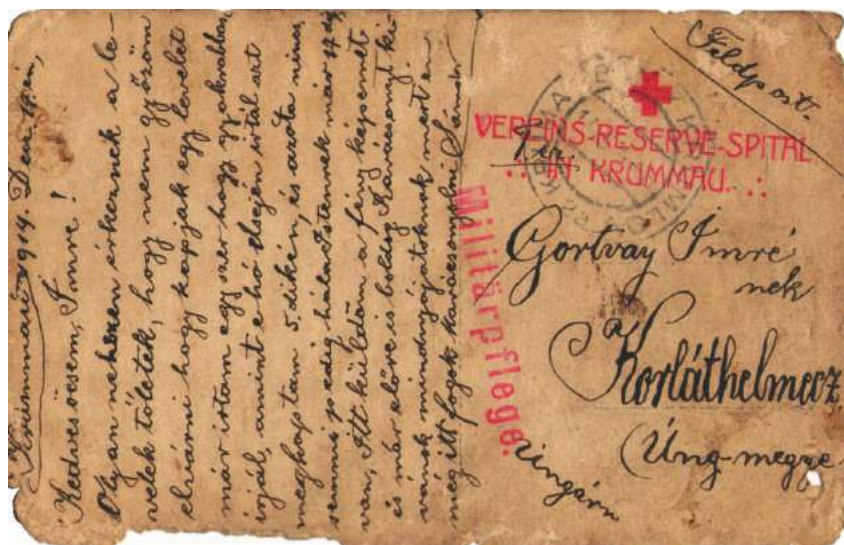 Krummau 1914. Dec. 17-én,
Kedves öcsém, Imre!
Olyan nehezen érkeznek a le-
velek tőletek, hogy nem győzöm
elvárni hogy kapjak egy levelet
már irtam egyszer hogy gyakrabban
irjál, amint e hó elsején irtál azt
megkaptam 5.dikén, és azóta nincs
semmi pedig hála Istennek már 17 dike
van, Itt küldöm a fény képemet
és már előre is boldog Karácsonyt ki-
vánok mindnyájatoknak mert én
még itt fogok karácsonyolni Sándor
Feldpost.
VEREINS-RESERVE-SPITAL
IN KRUMMAU
Militärpflege.
Gortvay Imré
nek
a
Korláthelmecz
(Ung-megye
Ungarn